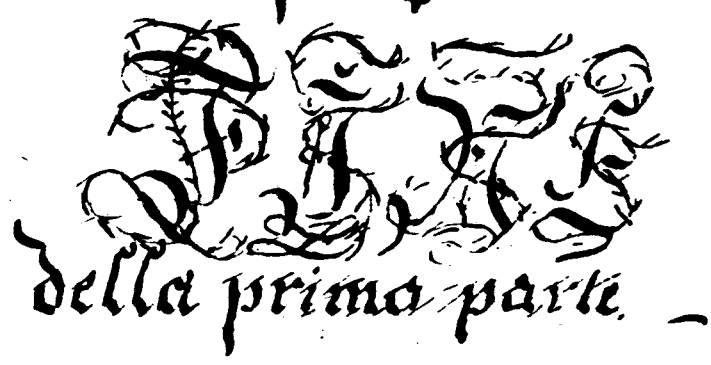 FINE
della prima parte.